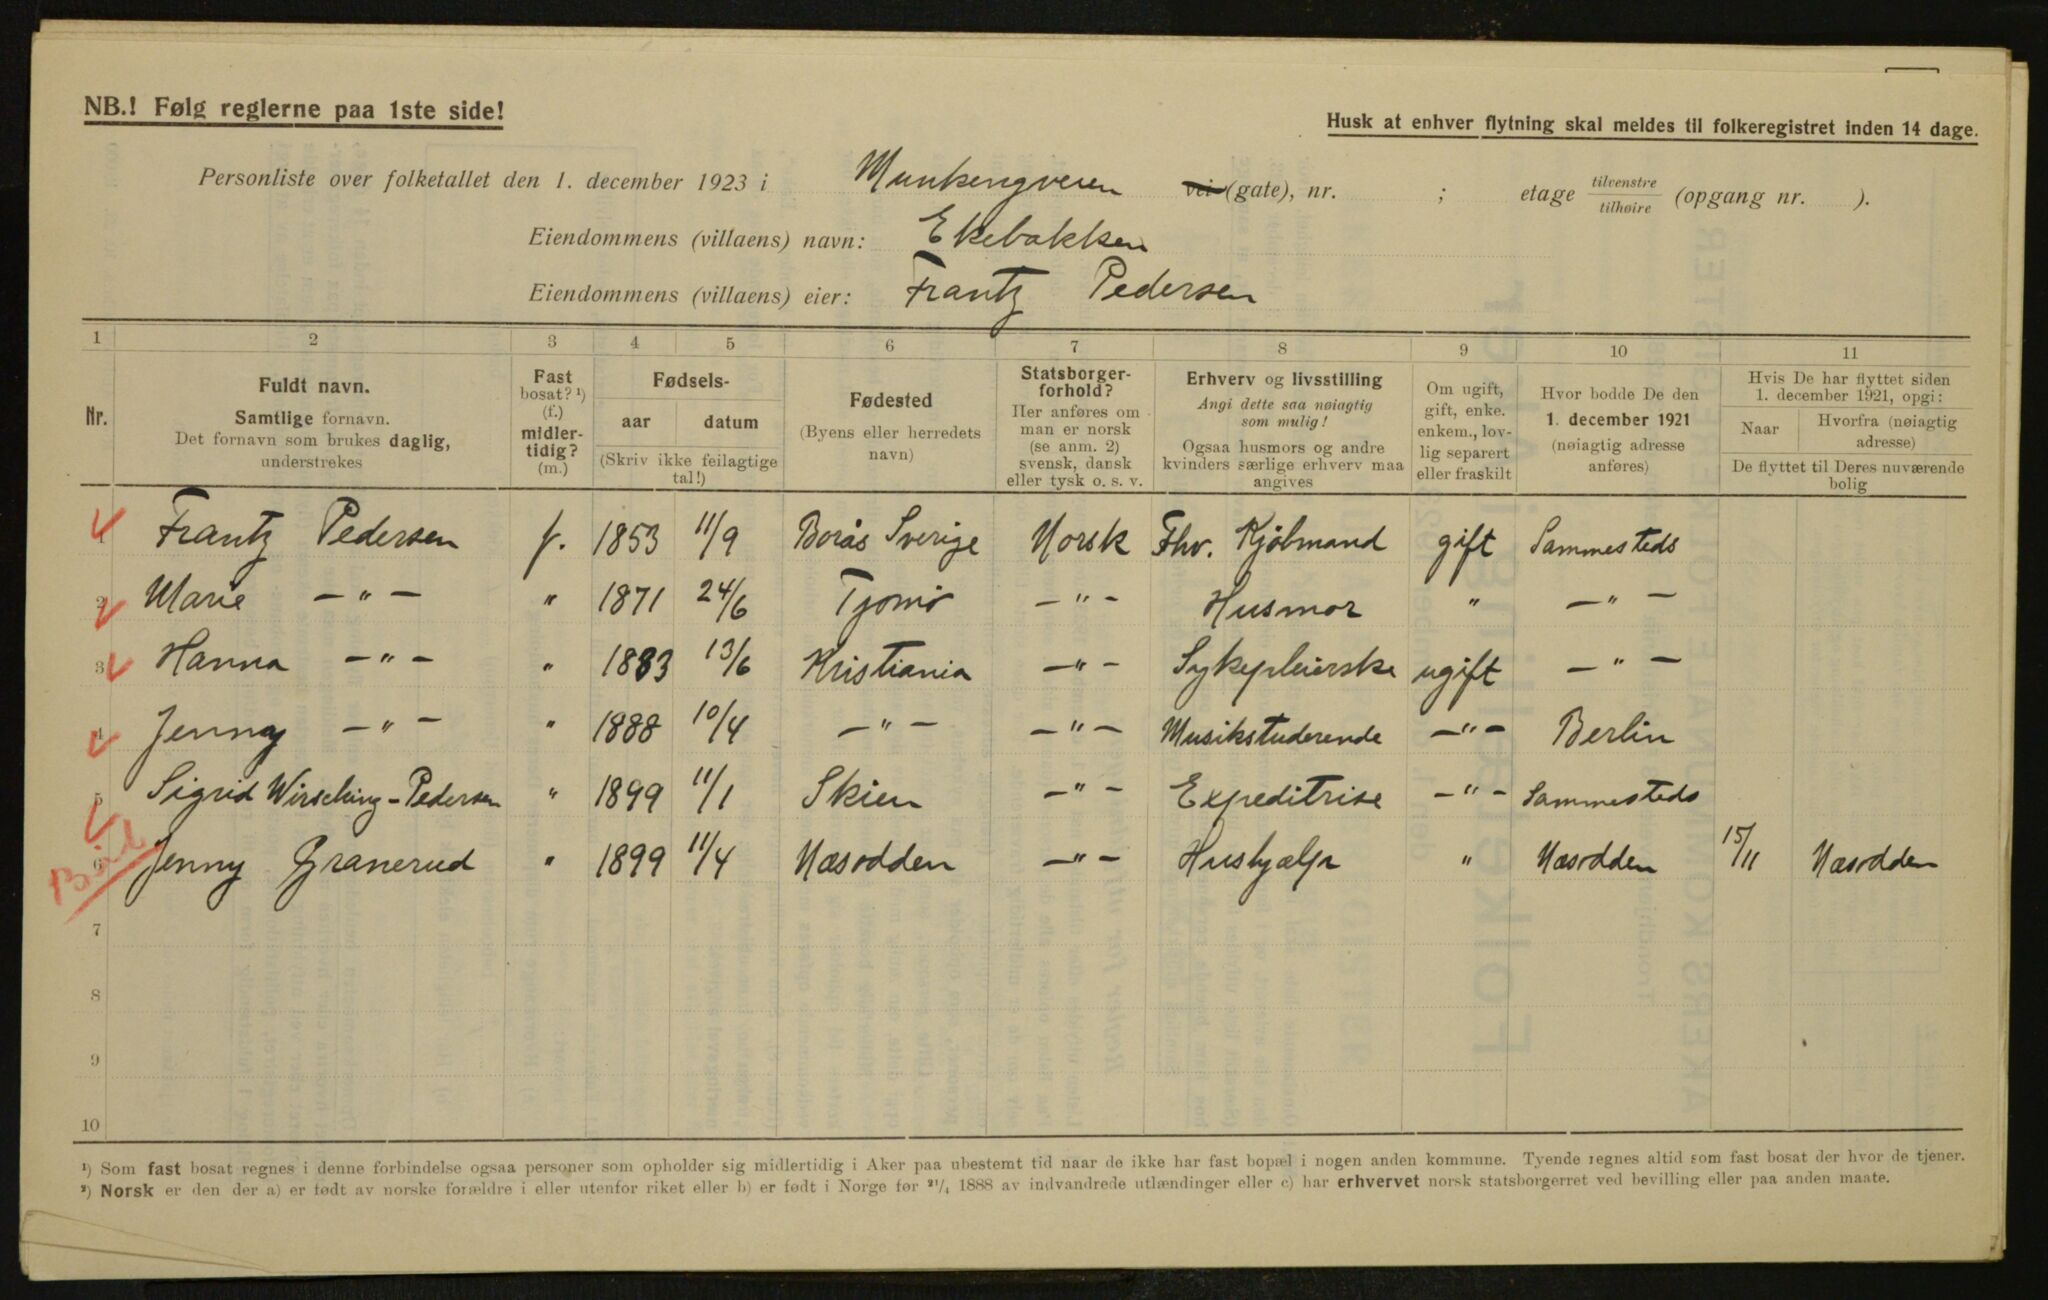 NB.! Følg reglerne paa 1ste side!
Husk at enhver flytning skal meldes til folkeregistret inden 14 dage.
Personliste over folketallet den 1. december 1923 i Munkengveien vei (gate), nr. ; etage tilvenstre tilhøire (opgang nr. ).
Eiendommens (villaens) navn: Ekebakken
Eiendommens (villaens) eier: Frantz Pedersen
1 2 3 4 5 6 7 8 9 10 11
Nr.
Fuldt navn.
Samtlige fornavn.
Det fornavn som brukes daglig,
understrekes
Fast
bosat? ¹)
(f.)
midler-
tidig?
(m.)
Fødsels-
aar datum
(Skriv ikke feilagtige
tal!)
Fødested
(Byens eller herredets
navn)
Statsborger-
forhold?
Her anføres om
man er norsk
(se anm. 2)
svensk, dansk
eller tysk o. s. v.
Erhverv og livsstilling
Angi dette saa nøiagtig
som mulig!
Ogsaa husmors og andre
kvinders særlige erhverv maa
angives
Om ugift,
gift, enke.
enkem., lov-
lig separert
eller fraskilt
Hvor bodde De den
1. december 1921
(nøiagtig adresse
anføres)
Hvis De har flyttet siden
1. december 1921, opgi:
Naar
Hvorfra (nøiagtig
adresse)
De flyttet til Deres nuværende
bolig
1 Frantz Pedersen f. 1853 11/9 Borås Sverige Norsk Fhv. Kjøbmand gift Sammesteds
2 Marie — " — " 1871 24/6 Tjømø — " — Husmor " — " —
3 Hanna — " — " 1883 13/6 Kristiania — " — Sykepleierske ugift — " —
4 Jenny — " — " 1888 10/4 — " — — " — Musikstuderende — " — Berlin
5 Sigrid Wirsching-Pedersen " 1899 11/1 Skien — " — Expeditrise — " — Sammesteds
6 Jenny Granerud " 1899 11/4 Næsodden — " — Hushjælp " Næsodden 15/11 Næsodden
7
8
9
10
¹) Som fast bosat regnes i denne forbindelse ogsaa personer som opholder sig midlertidig i Aker paa ubestemt tid naar de ikke har fast bopæl i nogen anden kommune. Tyende regnes altid som fast bosat der hvor de tjener.
²) Norsk er den der a) er født av norske forældre i eller utenfor riket eller b) er født i Norge før ²¹/₄ 1888 av indvandrede utlændinger eller c) har erhvervet norsk statsborgerret ved bevilling eller paa anden maate.